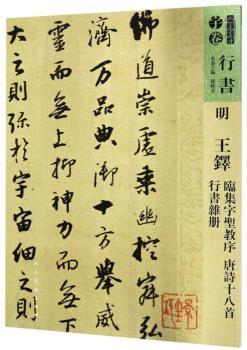 行書
明
王鐸
臨集字聖教序 唐詩十八首
行書雜册
佛道崇虛乘幽控寂弘
濟万品典御十方舉威
靈而無上抑神力而無
大之則弥於宇宙細之則